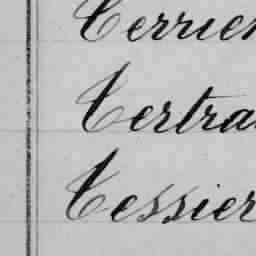 Terrien
Tertra
Tessier